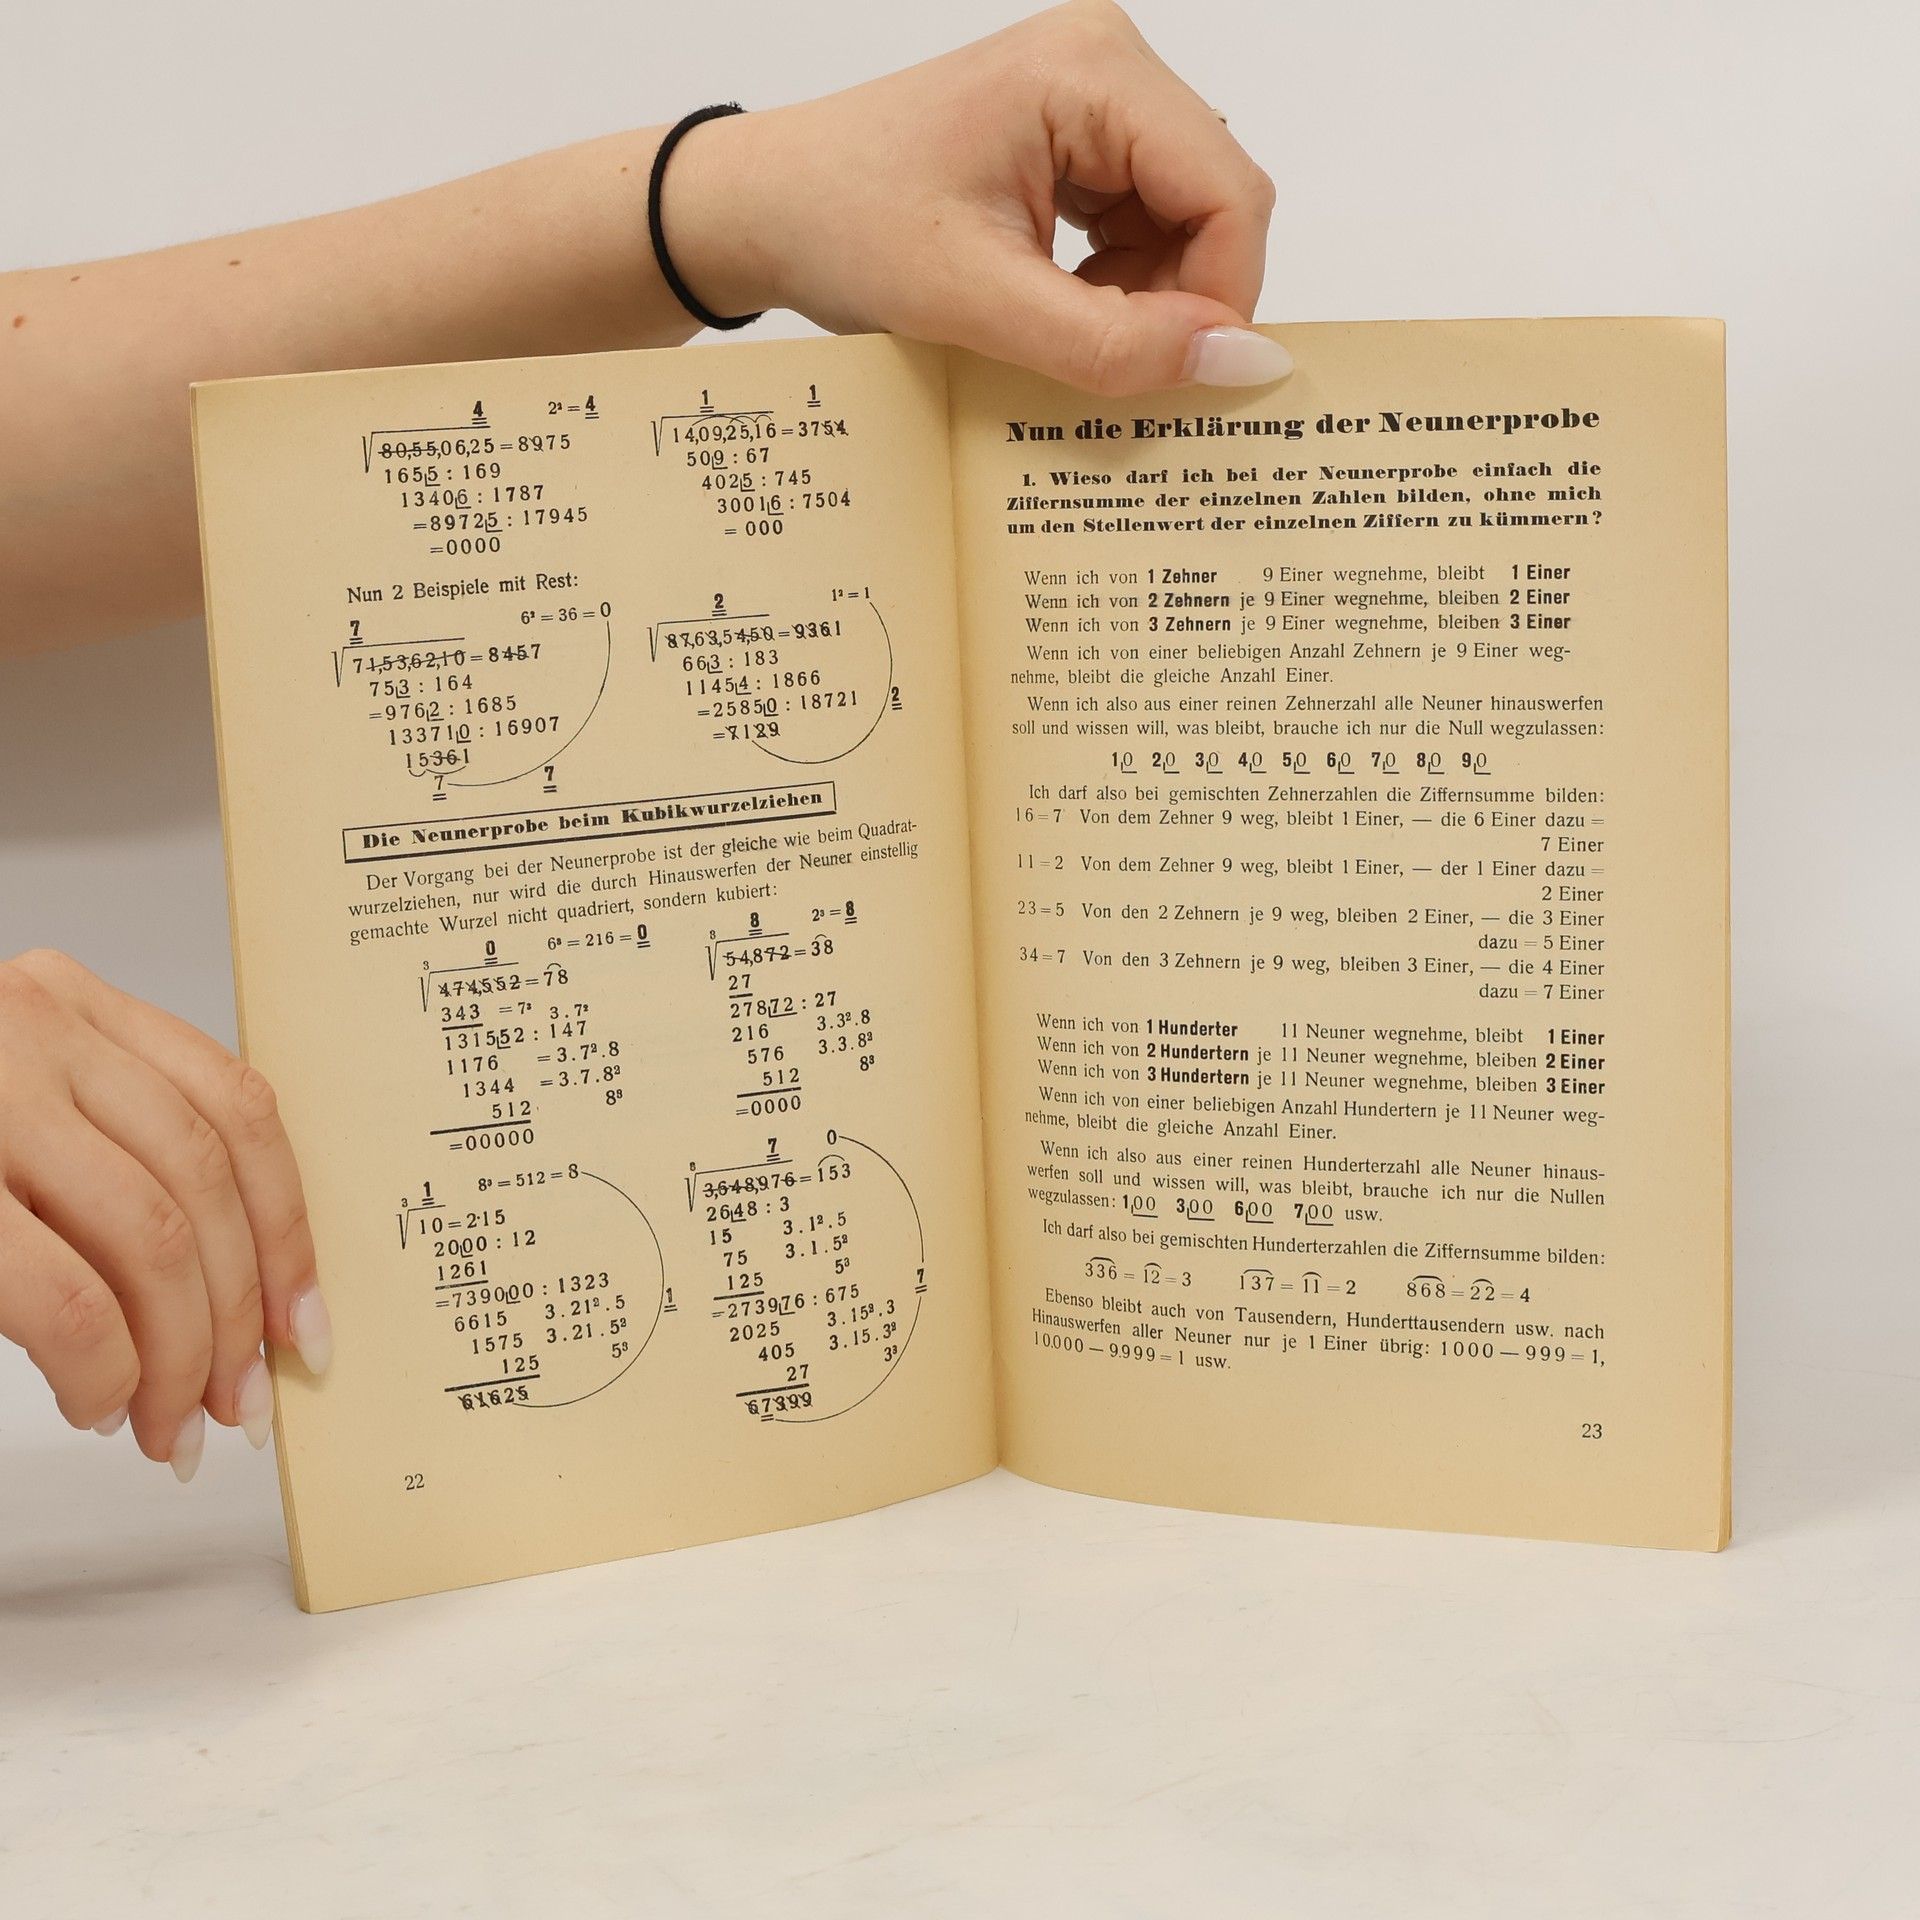 4 2² = 4
√80,55,06,25 = 8975
1655 : 169
13406 : 1787
=89725 : 17945
=0000
1 1
√14,09,25,16 = 3754
509 : 67
4025 : 745
30016 : 7504
= 000
Nun 2 Beispiele mit Rest:
7 6² = 36 = 0
√71,53,62,10 = 8457
753 : 164
=9762 : 1685
133710 : 16907
15361
7 7
2 1² = 1
√87,63,54,50 = 9361
663 : 183
11454 : 1866
=25850 : 18721 2
=7129
Die Neunerprobe beim Kubikwurzelziehen
Der Vorgang bei der Neunerprobe ist der gleiche wie beim Quadrat-
wurzelziehen, nur wird die durch Hinauswerfen der Neuner einstellig
gemachte Wurzel nicht quadriert, sondern kubiert:
0 6³ = 216 = 0
³√474,552 = 78
343 = 7³ 3.7²
131552 : 147
1176 = 3.7².8
1344 = 3.7.8²
512 8³
=00000
8 2³ = 8
³√54,872 = 38
27
27872 : 27
216 3.3².8
576 3.3.8²
512 8³
=0000
1 8³ = 512 = 8
³√10 = 2·15
2000 : 12
1261
=739000 : 1323
6615 3.21².5 1
1575 3.21.5²
125 5³
61625
7 0
³√3,648,976 = 153
2648 : 3
15 3.1².5
75 3.1.5²
125 5³ 7
=273976 : 675
2025 3.15².3
405 3.15.3²
27 3³
67399
22
Nun die Erklärung der Neunerprobe
1. Wieso darf ich bei der Neunerprobe einfach die
Ziffernsumme der einzelnen Zahlen bilden, ohne mich
um den Stellenwert der einzelnen Ziffern zu kümmern?
Wenn ich von 1 Zehner 9 Einer wegnehme, bleibt 1 Einer
Wenn ich von 2 Zehnern je 9 Einer wegnehme, bleiben 2 Einer
Wenn ich von 3 Zehnern je 9 Einer wegnehme, bleiben 3 Einer
Wenn ich von einer beliebigen Anzahl Zehnern je 9 Einer weg-
nehme, bleibt die gleiche Anzahl Einer.
Wenn ich also aus einer reinen Zehnerzahl alle Neuner hinauswerfen
soll und wissen will, was bleibt, brauche ich nur die Null wegzulassen:
10 20 30 40 50 60 70 80 90
Ich darf also bei gemischten Zehnerzahlen die Ziffernsumme bilden:
16 = 7 Von dem Zehner 9 weg, bleibt 1 Einer, — die 6 Einer dazu =
7 Einer
11 = 2 Von dem Zehner 9 weg, bleibt 1 Einer, — der 1 Einer dazu =
2 Einer
23 = 5 Von den 2 Zehnern je 9 weg, bleiben 2 Einer, — die 3 Einer
dazu = 5 Einer
34 = 7 Von den 3 Zehnern je 9 weg, bleiben 3 Einer, — die 4 Einer
dazu = 7 Einer
Wenn ich von 1 Hunderter 11 Neuner wegnehme, bleibt 1 Einer
Wenn ich von 2 Hundertern je 11 Neuner wegnehme, bleiben 2 Einer
Wenn ich von 3 Hundertern je 11 Neuner wegnehme, bleiben 3 Einer
Wenn ich von einer beliebigen Anzahl Hundertern je 11 Neuner weg-
nehme, bleibt die gleiche Anzahl Einer.
Wenn ich also aus einer reinen Hunderterzahl alle Neuner hinaus-
werfen soll und wissen will, was bleibt, brauche ich nur die Nullen
wegzulassen: 100 300 600 700 usw.
Ich darf also bei gemischten Hunderterzahlen die Ziffernsumme bilden:
336 = 12 = 3 137 = 11 = 2 868 = 22 = 4
Ebenso bleibt auch von Tausendern, Hunderttausendern usw. nach
Hinauswerfen aller Neuner nur je 1 Einer übrig: 1000 — 999 = 1,
10.000 — 9.999 = 1 usw.
23